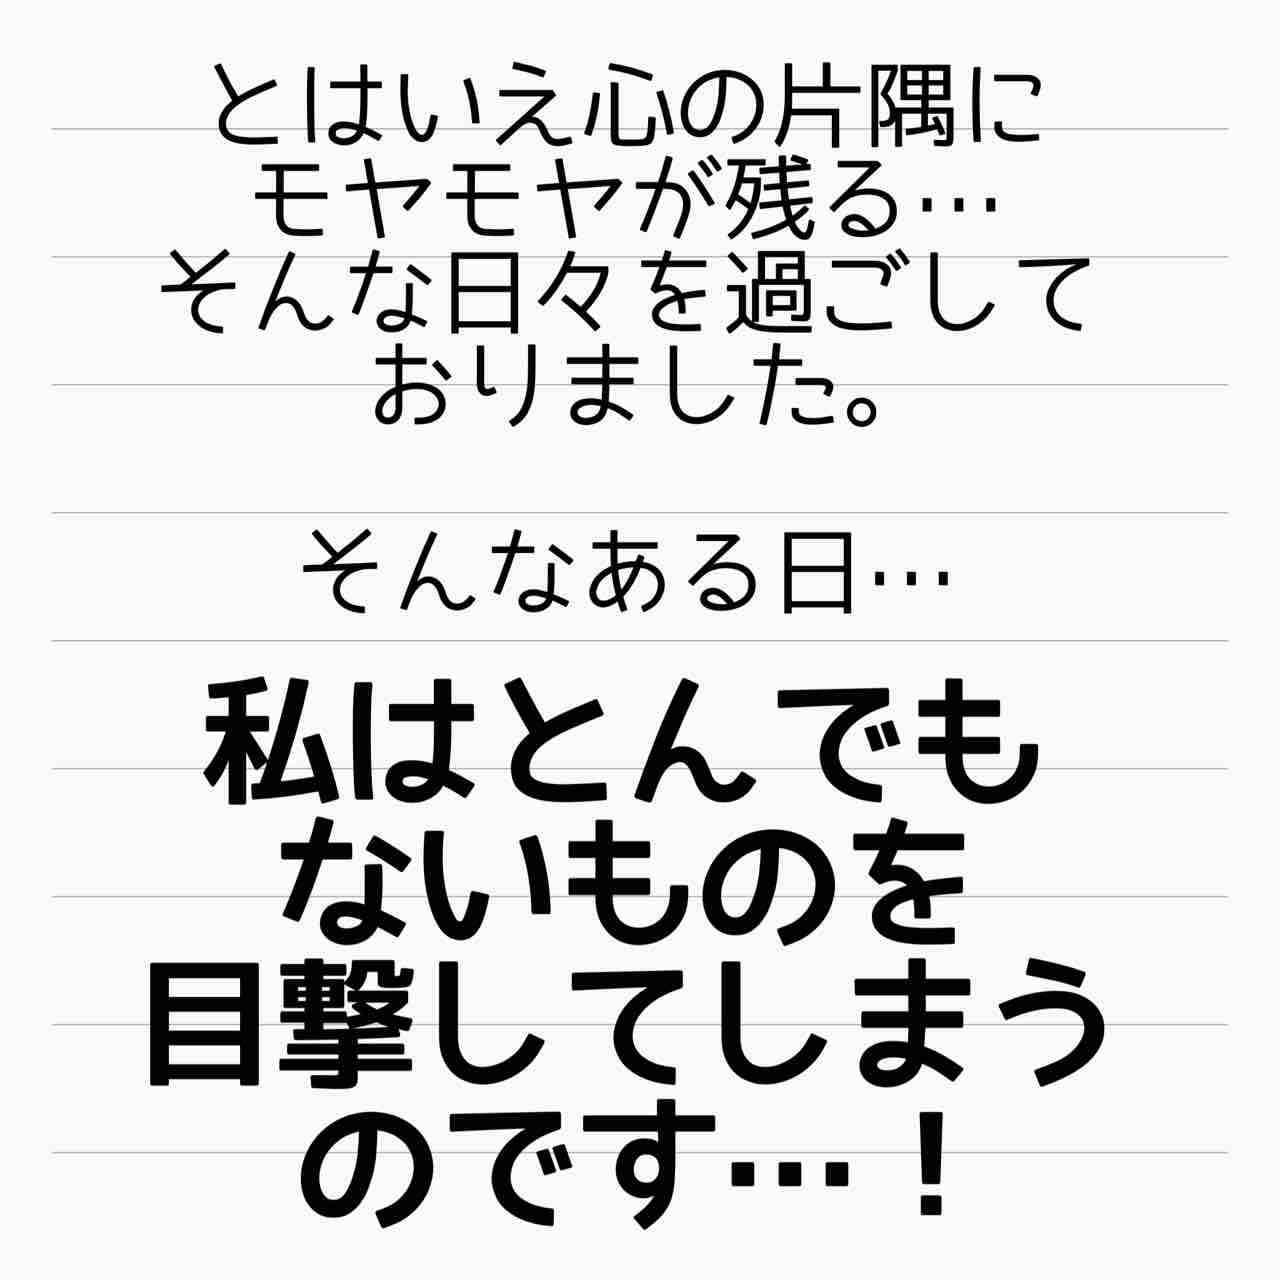 とはいえ心の片隅に
モヤモヤが残る…
そんな日々を過ごして
おりました。
そんなある日…
私はとんでも
ないものを
目撃してしまう
のです…！